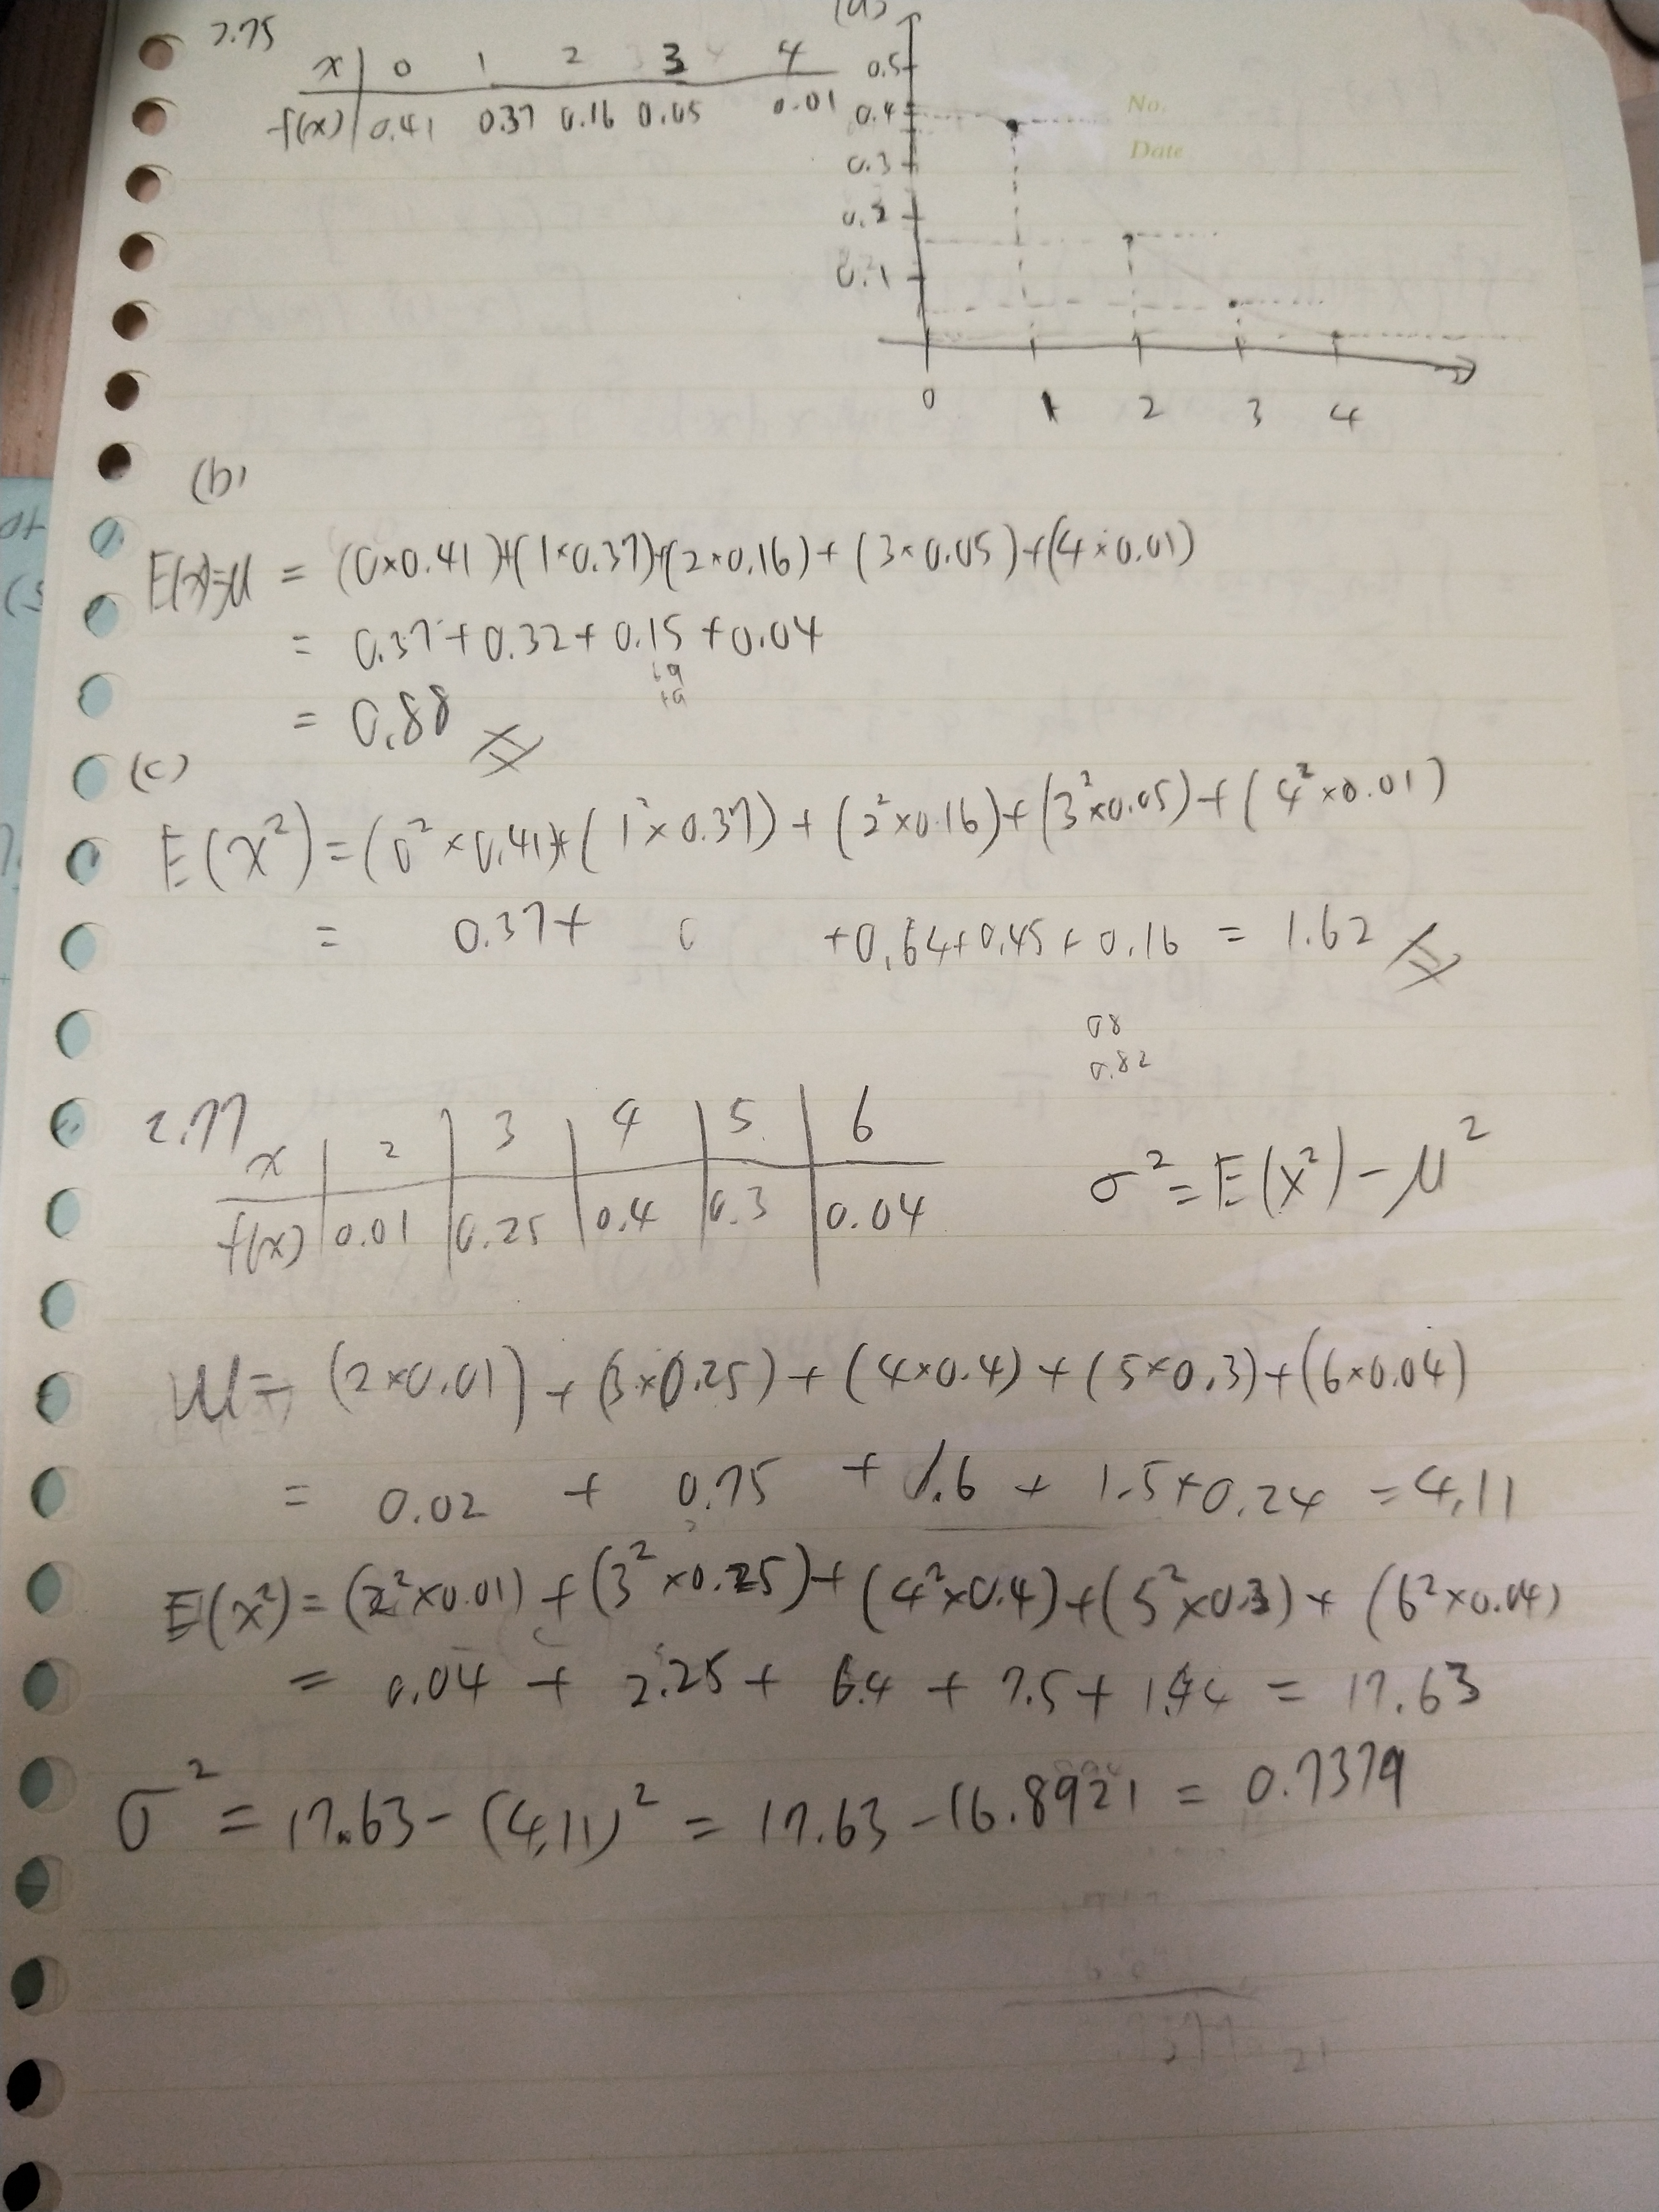 2.75
x | 0 1 2 3 4
f(x) | 0.41 0.37 0.16 0.05 0.01
(a)
0.5
0.4
0.3
0.2
0.1
0 1 2 3 4
No.
Date
(b)
E(x)=μ = (0×0.41)+(1×0.37)+(2×0.16)+(3×0.05)+(4×0.01)
= 0.37+0.32+0.15+0.04
= 0.88
(c)
E(x²)=(0²×0.41)+(1²×0.37)+(2²×0.16)+(3²×0.05)+(4²×0.01)
= 0.37+ 0 +0.64+0.45+0.16 = 1.62
08
0.82
2.77
x | 2 | 3 | 4 | 5 | 6
f(x) | 0.01 | 0.25 | 0.4 | 0.3 | 0.04
σ²=E(x²)-μ²
μ= (2×0.01)+(3×0.25)+(4×0.4)+(5×0.3)+(6×0.04)
= 0.02 + 0.75 + 1.6 + 1.5+0.24 = 4.11
E(x²)=(2²×0.01)+(3²×0.25)+(4²×0.4)+(5²×0.3)+(6²×0.04)
= 0.04 + 2.25 + 6.4 + 7.5 + 1.44 = 17.63
σ² = 17.63-(4.11)² = 17.63-16.8921 = 0.7379